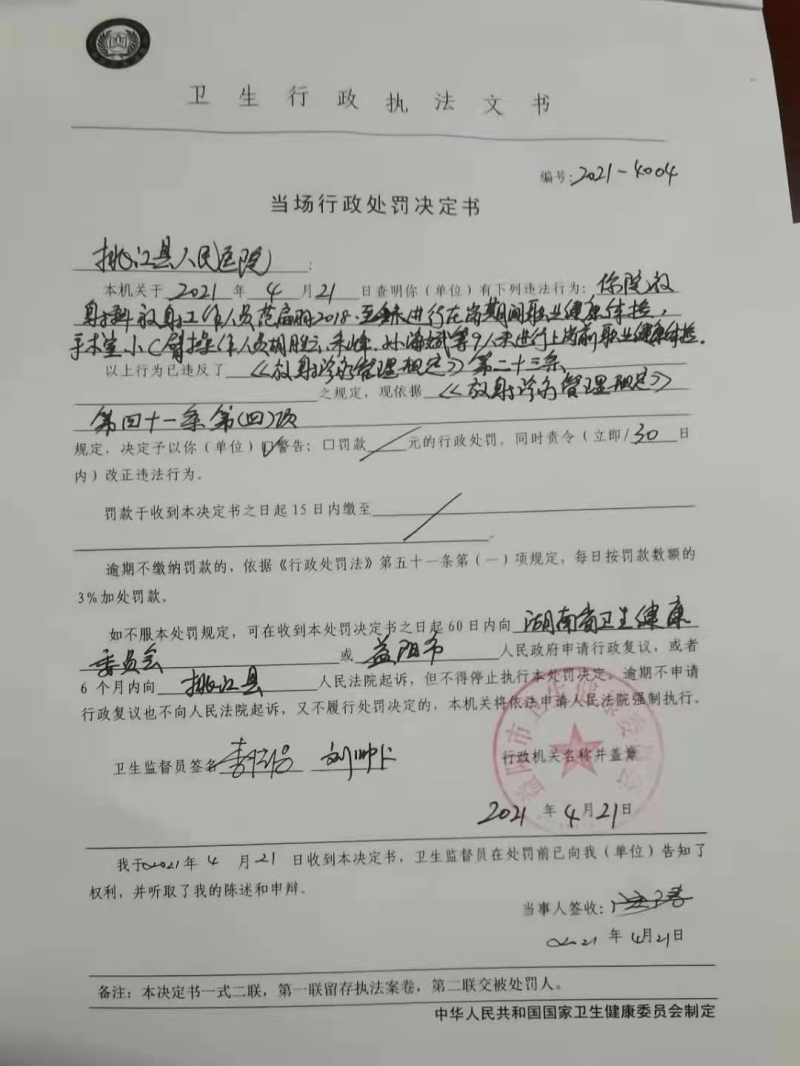 卫生行政执法文书
编号:2021-4004
当场行政处罚决定书
桃江县人民医院:
本机关于2021年4月21日查明你(单位)有下列违法行为:你院放
射科放射工作人员范 2018.至 未进行在岗期间职业健康体检,
手术室小C臂操作人员胡胜云、朱峰、孙海斌等9人未进行上岗前职业健康体检.
以上行为已违反了《放射诊疗管理规定》第二十三条
之规定,现依据《放射诊疗管理规定》
第四十一条第(四)项
规定,决定予以你(单位)☑警告;口罚款/元的行政处罚。同时责令(立即/30日
内)改正违法行为。
罚款于收到本决定书之日起15日内缴至
。
逾期不缴纳罚款的,依据《行政处罚法》第五十一条第(一)项规定,每日按罚款数额的
3%加处罚款。
如不服本处罚规定,可在收到本处罚决定书之日起60日内向湖南省卫生健康
委员会或益阳市人民政府申请行政复议,或者
6个月内向桃江县人民法院起诉,但不得停止执行本处罚决定。逾期不申请
行政复议也不向人民法院起诉,又不履行处罚决定的,本机关将依法申请人民法院强制执行。
卫生监督员签名 刘帅
行政机关名称并盖章
益阳市卫生健康委员会
2021年4月21日
我于2021年4月21日收到本决定书,卫生监督员在处罚前已向我(单位)告知了
权利,并听取了我的陈述和申辩。
当事人签收:
2021年4月21日
备注:本决定书一式二联,第一联留存执法案卷,第二联交被处罚人。
中华人民共和国国家卫生健康委员会制定